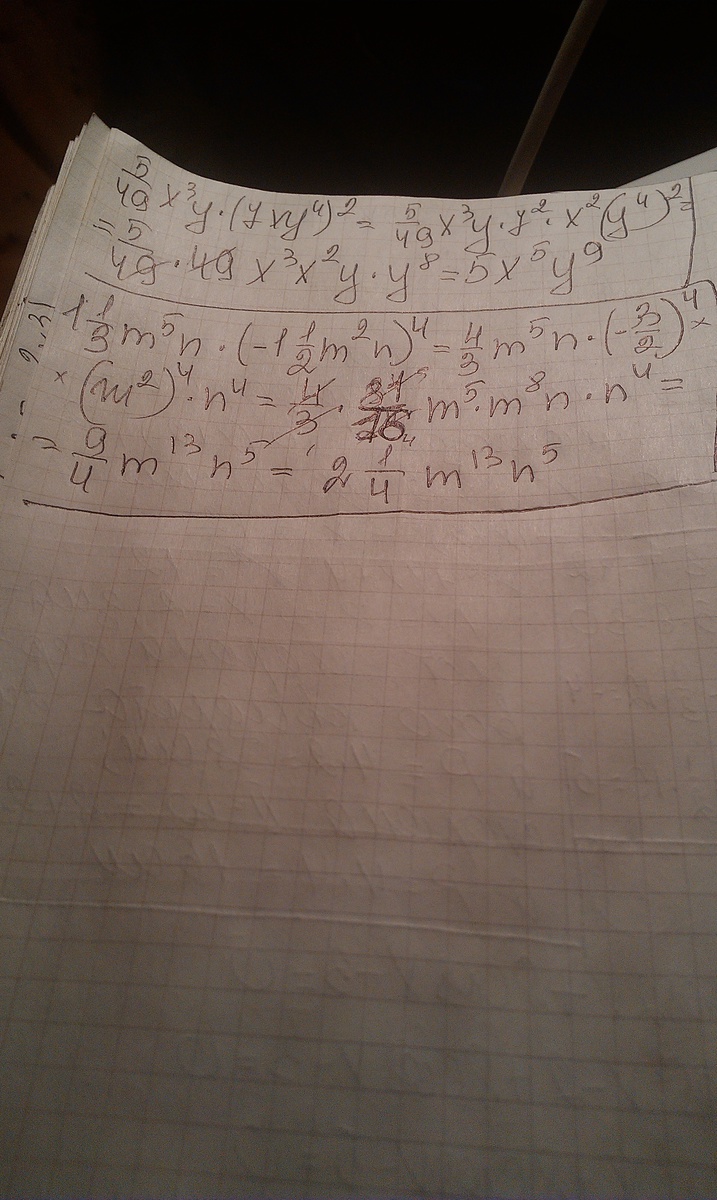 5/49 x³y·(7xy⁴)² = 5/49 x³y·7²·x²(y⁴)² =
= 5/49·49 x³x²y·y⁸ = 5x⁵y⁹
1 1/3 m⁵n·(-1 1/2 m²n)⁴ = 4/3 m⁵n·(-3/2)⁴ ×
× (m²)⁴·n⁴ = 4/3 · 81/16 m⁵·m⁸n·n⁴ =
= 9/4 m¹³n⁵ = 2 1/4 m¹³n⁵